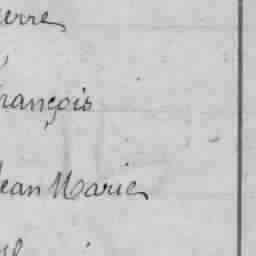 ierre
rançois
Jean Marie